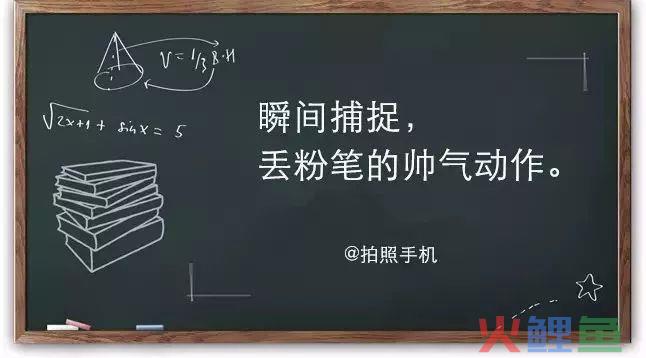 V=1/3 B·H
√2x+1 + sinx = 5
瞬间捕捉，
丢粉笔的帅气动作。
@拍照手机
火鲤鱼